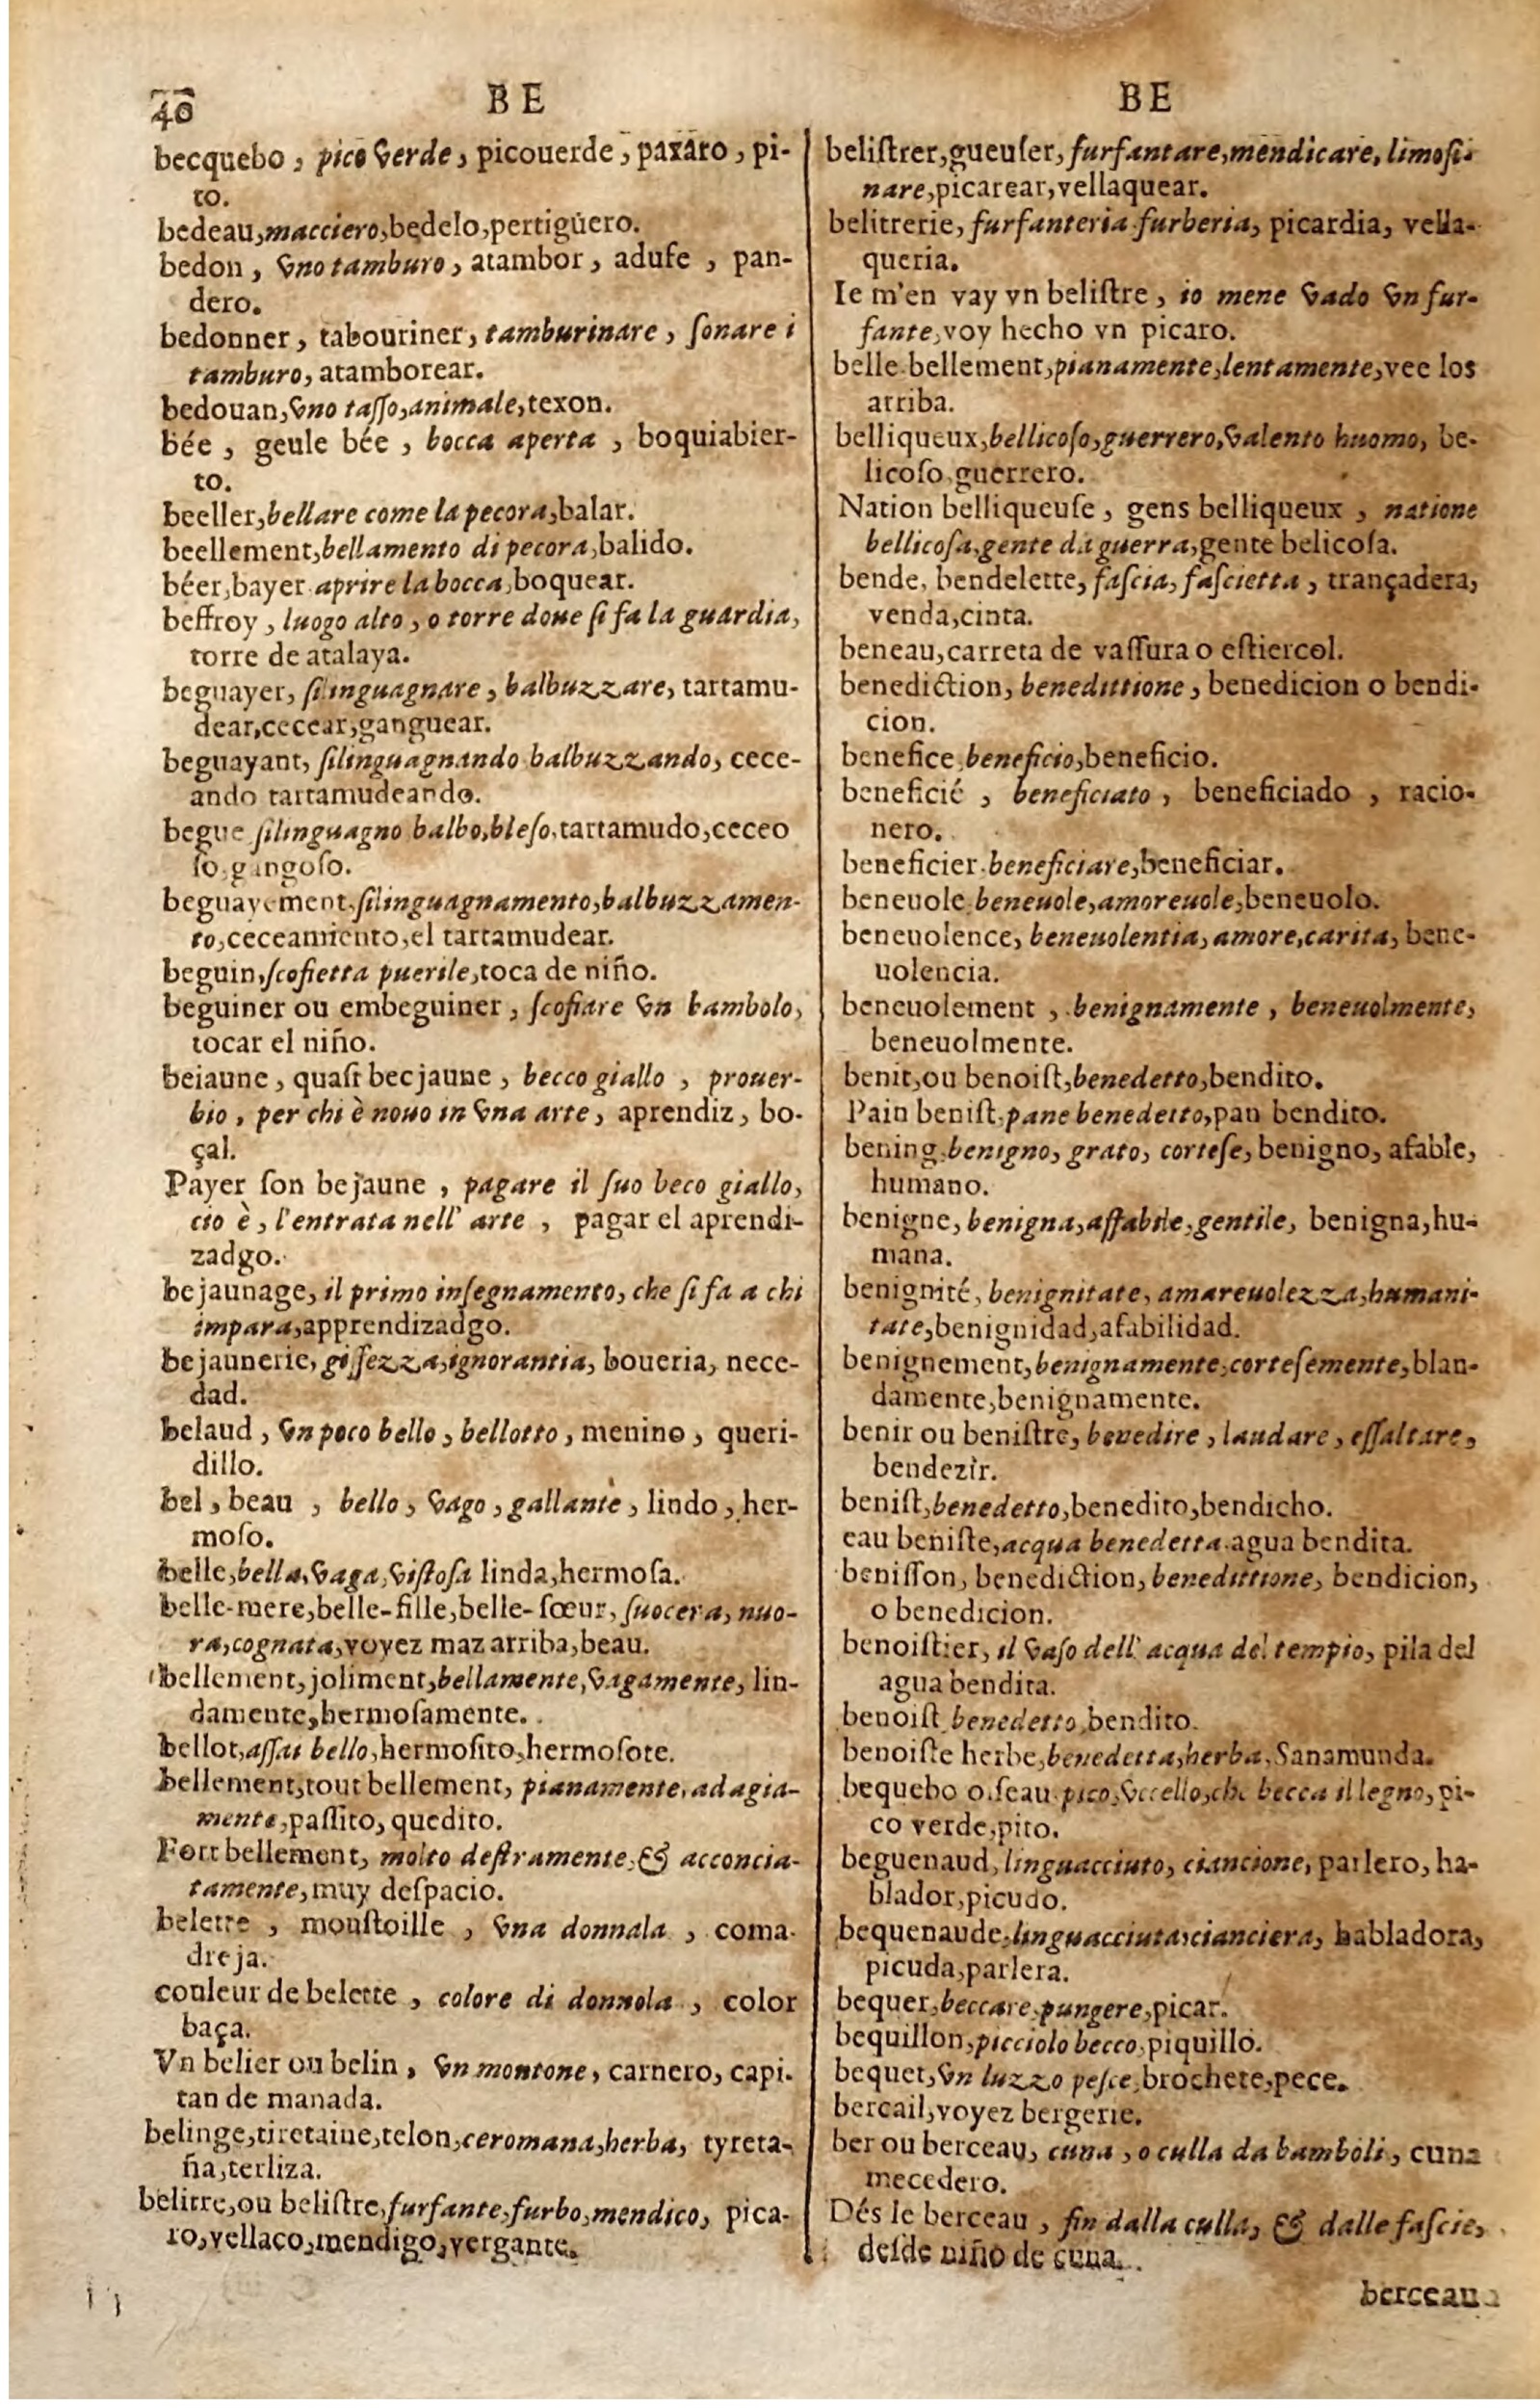 40
BE
becquebo, pico verde, picouerde, paxaro, pi-
to.
bedeau, macciero, bedelo, pertiguero.
bedon, vno tamburo, atambor, adufe, pan-
dero.
bedonner, tabouriner, tamburinare, ſonare i
tamburo, atamborear.
bedouan, vno taſſo, animale, texon.
bée, geule bée, bocca aperta, boquiabier-
to.
beeller, bellare come la pecora, balar.
beellement, bellamento di pecora, balido.
béer, bayer aprire la bocca, boquear.
beffroy, luogo alto, o torre doue ſi fa la guardia,
torre de atalaya.
beguayer, ſilinguagnare, balbuzzare, tartamu-
dear, cecear, ganguear.
beguayant, ſilinguagnando balbuzzando, cece-
ando tartamudeando.
begue ſilinguagno balbo, bleſo, tartamudo, ceceo
ſo, gangoſo.
beguayement, ſilinguagnamento, balbuzzamen-
to, ceceamiento, el tartamudear.
beguin, ſcofietta puerile, toca de niño.
beguiner ou embeguiner, ſcofiare vn bambolo,
tocar el niño.
beiaune, quaſi becjaune, becco giallo, prouer-
bio, per chi è nouo in vna arte, aprendiz, bo-
çal.
Payer ſon bejaune, pagare il ſuo beco giallo,
cio è, l'entrata nell' arte, pagar el aprendi-
zadgo.
bejaunage, il primo inſegnamento, che ſi fa a chi
impara, apprendizadgo.
bejaunerie, goffezza, ignorantia, boueria, nece-
dad.
belaud, vn poco bello, bellotto, menino, queri-
dillo.
bel, beau, bello, vago, gallante, lindo, her-
moſo.
belle, bella, vaga, viſtoſa linda, hermoſa.
belle-mere, belle-fille, belle-ſœur, ſuocera, nuo-
ra, cognata, voyez maz arriba, beau.
bellement, joliment, bellamente, vagamente, lin-
damente, hermoſamente.
bellot, aſſai bello, hermoſito, hermoſote.
bellement, tout bellement, pianamente, adagia-
mente, paſſito, quedito.
Fort bellement, molto deſtramente, & acconcia-
tamente, muy deſpacio.
belette, mouſtoille, vna donnala, coma-
dreja.
couleur de belette, colore di donnola, color
baça.
Vn belier ou belin, vn montone, carnero, capi-
tan de manada.
belinge, tiretaine, telon, ceromana, herba, tyreta-
ña, terliza.
belitre, ou beliſtre, furfante, furbo, mendico, pica-
ro, vellaco, mendigo, vergante.
BE
beliſtrer, gueuſer, furfantare, mendicare, limoſi-
nare, picarear, vellaquear.
belitrerie, furfanteria furberia, picardia, vella-
queria.
Ie m'en vay vn beliſtre, io mene vado vn fur-
fante, voy hecho vn picaro.
belle bellement, pianamente, lentamente, vee los
arriba.
belliqueux, bellicoſo, guerrero, valento huomo, be-
licoſo, guerrero.
Nation belliqueuſe, gens belliqueux, natione
bellicoſa, gente da guerra, gente belicoſa.
bende, bendelette, faſcia, faſcietta, trançadera,
venda, cinta.
beneau, carreta de vaſſura o eſtiercol.
benediction, benedittione, benedicion o bendi-
cion.
benefice, beneficio, beneficio.
beneficié, beneficiato, beneficiado, racio-
nero.
beneficier, beneficiare, beneficiar.
beneuole, beneuole, amoreuole, beneuolo.
beneuolence, beneuolentia, amore, carita, bene-
uolencia.
beneuolement, benignamente, beneuolmente,
beneuolmente.
benit, ou benoiſt, benedetto, bendito.
Pain beniſt, pane benedetto, pan bendito.
bening, benigno, grato, corteſe, benigno, afable,
humano.
benigne, benigna, affabile, gentile, benigna, hu-
mana.
benignité, benignitate, amareuolezza, humani-
tate, benignidad, afabilidad.
benignement, benignamente, corteſemente, blan-
damente, benignamente.
benir ou beniſtre, benedire, laudare, eſſaltare,
bendezir.
beniſt, benedetto, benedito, bendicho.
eau beniſte, acqua benedetta agua bendita.
beniſſon, benediction, benedittione, bendicion,
o benedicion.
benoiſtier, il vaſo dell' acqua del tempio, pila del
agua bendita.
benoiſt, benedetto, bendito.
benoiſte herbe, benedetta, herba, Sanamunda.
bequebo oiſeau pico, vccello, che becca il legno, pi-
co verde, pito.
beguenaud, linguacciuto, ciancione, parlero, ha-
blador, picudo.
bequenaude, linguacciuta, cianciera, habladora,
picuda, parlera.
bequer, beccare, pungere, picar.
bequillon, picciolo becco, piquillo.
bequet, vn luzzo peſce, brochete, pece.
bercail, voyez bergerie.
ber ou berceau, cuna, o culla da bamboli, cuna
mecedero.
Dés le berceau, fin dalla culla, & dalle faſcie,
deſde niño de cuna.
berceau